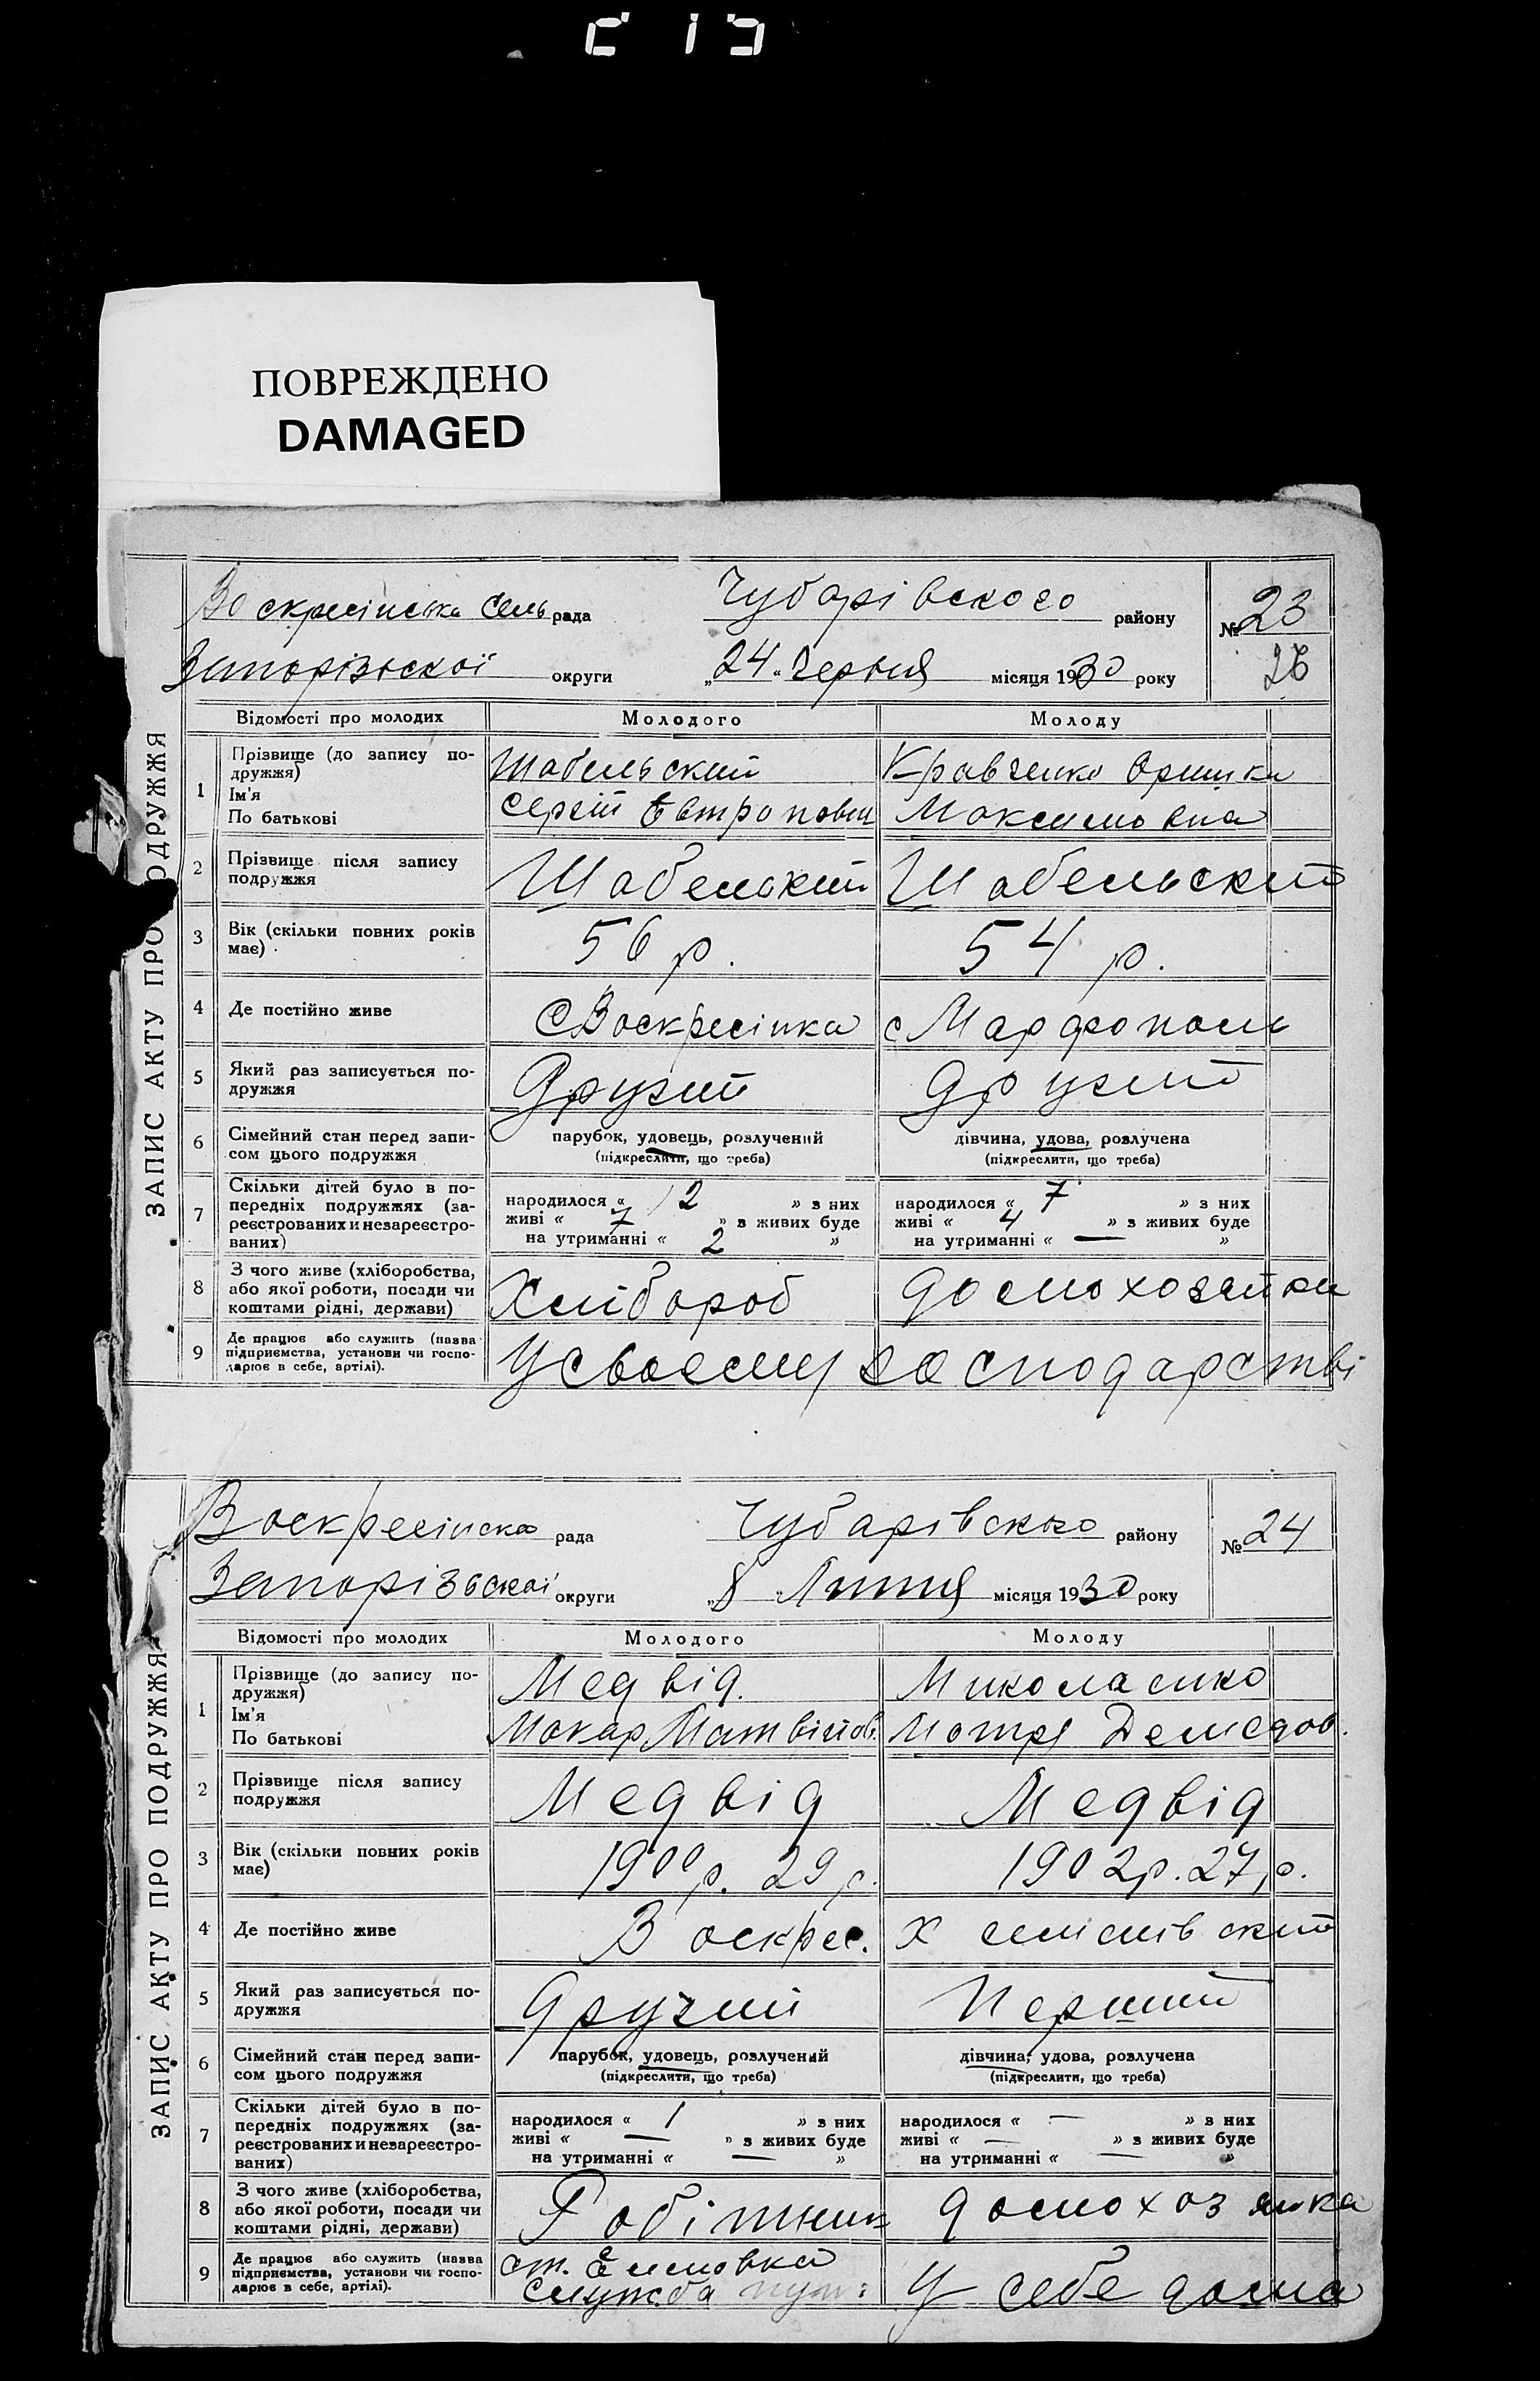 ПОВРЕЖДЕНО
DAMAGED
ЗАПИС АКТУ ПРО ПОДРУЖЖЯ
Воскресінська Сель рада Чубарівского району № 23
Запорізьскої округи „24“ Червня місяця 1930 року 26
Відомості про молодих Молодого Молоду
1 Прізвище (до запису по-
дружжя)
Ім'я
По батькові
Шабельский Кравченко Оришка
Сергій Евтропович Максимовна
2 Прізвище після запису
подружжя
Шабельский Шабельский
3 Вік (скільки повних років
має)
56 р. 54 р.
4 Де постійно живе С Воскресінка с Марфополь
5 Який раз записується по-
дружжя
Другий Другий
6 Сімейний стан перед запи-
сом цього подружжя
парубок, удовець, розлучений дівчина, удова, розлучена
(підкреслити, що треба) (підкреслити, що треба)
7 Скільки дітей було в по-
передніх подружжях (за-
реєстрованих и незареєстро-
ваних)
народилося « 12 » з них народилося « 7 » з них
живі « 7 » з живих буде живі « 4 » з живих буде
на утриманні « 2 » на утриманні « — »
8 З чого живе (хліборобства,
або якої роботи, посади чи
коштами рідні, держави)
Хлібороб домохозяйки
9 Де працює або служить (назва
підприємства, установи чи госпо-
дарює в себе, артілі).
У своєму господарстві
ЗАПИС АКТУ ПРО ПОДРУЖЖЯ
Воскресінска рада Чубарівского району № 24
Запорізьскоі округи „8 Липня місяця 1930 року
Відомості про молодих Молодого Молоду
1 Прізвище (до запису по-
дружжя)
Ім'я
По батькові
Медвід. Миколаенко
Макар Матвійов. Мотря Демедов.
2 Прізвище після запису
подружжя
Медвід Медвід
3 Вік (скільки повних років
має)
1900 р. 29 р. 1902 р. 27 р.
4 Де постійно живе Воскрес. Х
5 Який раз записується по-
дружжя
Другий Перший
6 Сімейний стан перед запи-
сом цього подружжя
парубок, удовець, розлучений дівчина, удова, розлучена
(підкреслити, що треба) (підкреслити, що треба)
7 Скільки дітей було в по-
передніх подружжях (за-
реєстрованих и незареєстро-
ваних)
народилося « 1 » з них народилося « — » з них
живі « — » з живих буде живі « — » з живих буде
на утриманні « — » на утриманні « — »
8 З чого живе (хліборобства,
або якої роботи, посади чи
коштами рідні, держави)
Робітник домохозяика
9 Де працює або служить (назва
підприємства, установи чи госпо-
дарює в себе, артілі).
ст.
служба У себе дома